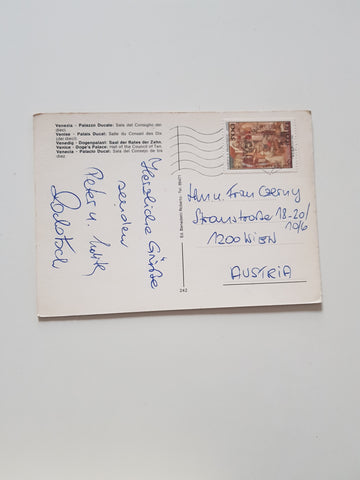 Venezia - Palazzo Ducale: Sala del Consiglio dei
dieci.
Venise - Palais Ducal: Salle du Conseil des Dix
Venedig - Dogenpalast: Saal der Rates der Zehn.
Venice - Doge's Palace: Hall of the Council of Ten.
Venecia - Palacio Ducal: Sala del Consejo de los
diez.
Herzliche Grüße
senden
Peter u.
242
Herrn u. Frau Czerny
Stromstraße 18-20/
10/6
1200 WIEN
AUSTRIA